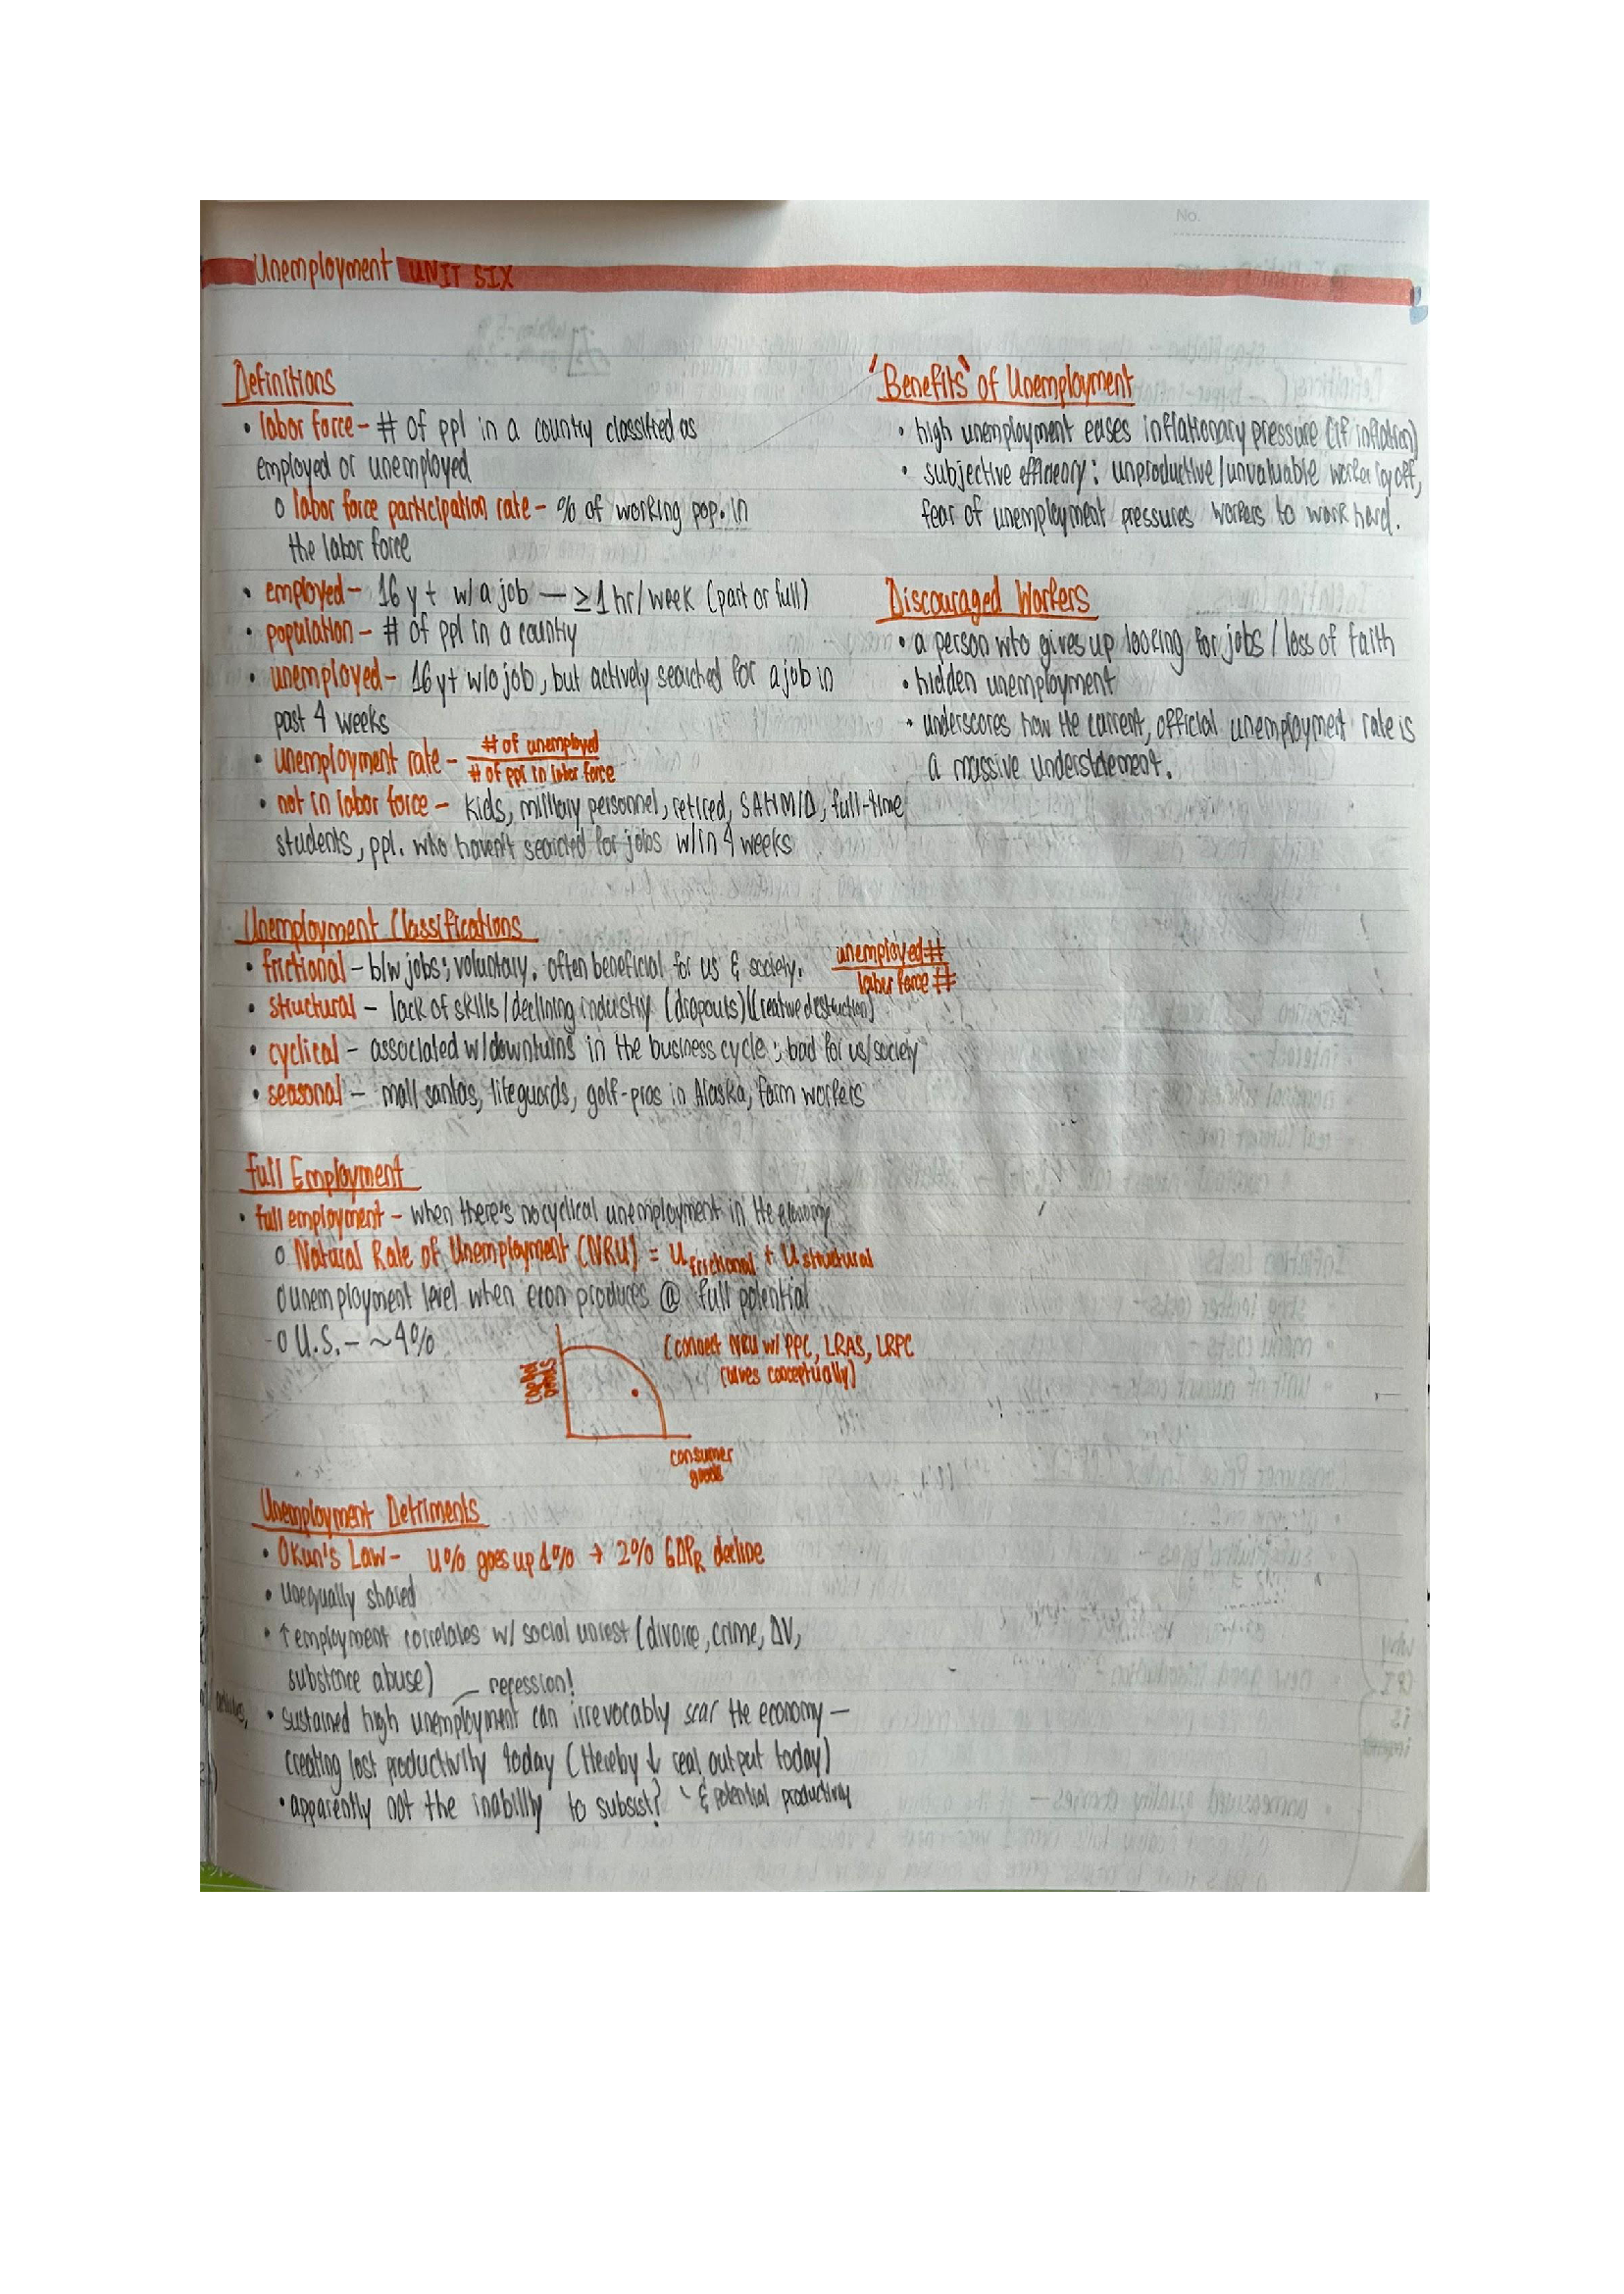 No.
Unemployment UNIT SIX
Definitions
• labor force - # of ppl in a country classified as
employed or unemployed
o labor force participation rate - % of working pop. in
the labor force
• employed - 16 y + w/a job — ≥1 hr/week (part or full)
• population - # of ppl in a country
• unemployed - 16 y+ w/o job, but actively searched for a job in
past 4 weeks
• unemployment rate - # of unemployed
# of ppl in labor force
• not in labor force - kids, military personnel, retired, SAHM/D, full-time
students, ppl. who haven't searched for jobs w/in 4 weeks
Unemployment Classifications
• frictional - b/w jobs; voluntary. often beneficial for us & society.
unemployed #
labor force #
• structural - lack of skills/declining industry (dropouts)(creative destruction)
• cyclical - associated w/downturns in the business cycle; bad for us/society
• seasonal - mall santas, lifeguards, golf-pros in Alaska, farm workers
Full Employment
• full employment - when there's no cyclical unemployment in the economy
o Natural Rate of Unemployment (NRU) = u frictional + u structural
o unemployment level when econ produces @ full potential
- o U.S. - ~4%
(connect NRU w/ PPC, LRAS, LRPC
curves conceptually)
capital
goods
consumer
goods
Unemployment Detriments
• Okun's Law - u% goes up 1% → 2% GDPR decline
• unequally shared
• ↑ employment correlates w/ social unrest (divorce, crime, DV,
substance abuse)
recession!
• sustained high unemployment can irrevocably scar the economy —
creating lost productivity today (thereby ↓ real output today)
& potential productivity
• apparently not the inability to subsist?
'Benefits' of Unemployment
• high unemployment eases inflationary pressure (if inflation)
• subjective efficiency: unproductive/unvaluable worker layoff,
fear of unemployment pressures workers to work hard.
Discouraged Workers
• a person who gives up looking for jobs / loss of faith
• hidden unemployment
• underscores how the current, official unemployment rate is
a massive understatement.